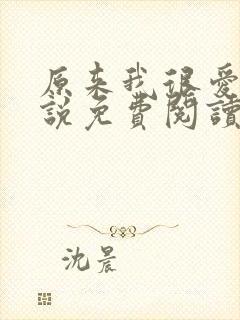 原来我很爱
說免費閱讀
沈晨